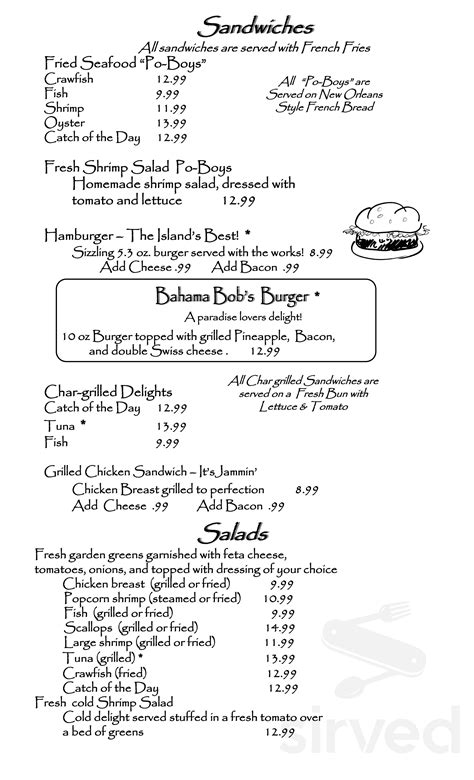 Sandwiches
All sandwiches are served with French Fries
Fried Seafood "Po-Boys"
Crawfish 12.99
Fish 9.99
Shrimp 11.99
Oyster 13.99
Catch of the Day 12.99
All "Po-Boys" are
Served on New Orleans
Style French Bread
Fresh Shrimp Salad Po-Boys
Homemade shrimp salad, dressed with
tomato and lettuce 12.99
Hamburger – The Island's Best! *
Sizzling 5.3 oz. burger served with the works! 8.99
Add Cheese .99 Add Bacon .99
Bahama Bob's Burger *
A paradise lovers delight!
10 oz Burger topped with grilled Pineapple, Bacon,
and double Swiss cheese . 12.99
Char-grilled Delights
Catch of the Day 12.99
Tuna * 13.99
Fish 9.99
All Char grilled Sandwiches are
served on a Fresh Bun with
Lettuce & Tomato
Grilled Chicken Sandwich – It's Jammin'
Chicken Breast grilled to perfection 8.99
Add Cheese .99 Add Bacon .99
Salads
Fresh garden greens garnished with feta cheese,
tomatoes, onions, and topped with dressing of your choice
Chicken breast (grilled or fried) 9.99
Popcorn shrimp (steamed or fried) 10.99
Fish (grilled or fried) 9.99
Scallops (grilled or fried) 14.99
Large shrimp (grilled or fried) 11.99
Tuna (grilled) * 13.99
Crawfish (fried) 12.99
Catch of the Day 12.99
Fresh cold Shrimp Salad
Cold delight served stuffed in a fresh tomato over
a bed of greens 12.99
sirved